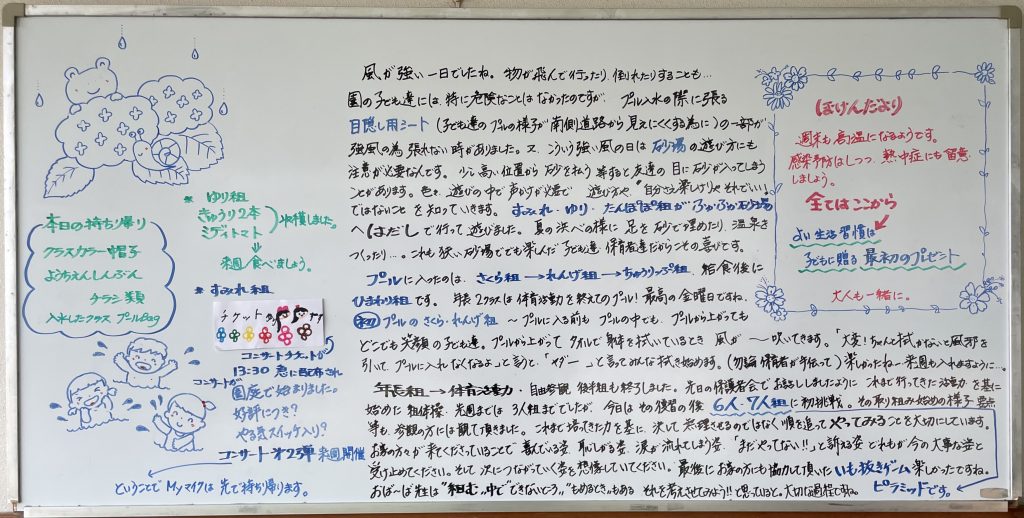 本日の持ち帰り
クラスカラー帽子
ようちえんしんぶん
チラシ類
入水したクラス プールBag
* ゆり組
きゅうり2本
ミディトマト
収穫しました。
来週食べましょう。
* すみれ組
チケット
コンサートチケットが
13:30 急に配布され
コンサートが
園庭で始まりました。
好評につき?
やる気スイッチ入り?
コンサート第2弾 来週開催
ということで Myマイクは 先で持ち帰ります。
風が強い一日でしたね。物が飛んで行ったり、倒れたりすることも…
園の子ども達には、特に危険なことはなかったのですが、プール入水の際に張る
目隠し用シート(子ども達のプールの様子が南側道路から見えにくくする為に)の一部が
強風の為 張れない時がありました。又、こういう強い風の日は 砂場の遊び方にも
注意が必要なんです。少し高い位置から砂を払う等すると友達の目に砂が入ってしまう
ことがあります。色々、遊びの中で声かけが必要で 遊び方や"自分さえ楽しけりゃそれでいい!
ではないことを知っていきます。すみれ・ゆり・たんぽぽ組が ふかふか砂場
へはだしで行って遊びました。夏の浜べの様に足を砂で埋めたり、温泉を
つくったり…。これも狭い砂場でも楽しんだ子ども達、保育者達だからこその喜びです。
プールに入ったのは、さくら組→れんげ組→ちゅうりっぷ組、給食後に
ひまわり組です。年長2クラスは体育活動を終えてのプール!最高の金曜日ですね。
初 プールのさくら・れんげ組 ～プールに入る前も プールの中でも、プールから上がっても
どこでも笑顔の子ども達。プールから上がって タオルで身体を拭いているとき 風が～吹いてきます。「大変!ちゃんと拭かないと風邪を
引いて、プールに入れなくなるよ」と言うと、「ヤダー」…と言ってみんな拭き始めます。(勿論 保育者が手伝って)楽しかったね～来週も入れますように…
年長組→体育活動・自由参観、後半組も終了しました。先日の保護者会でお話ししましたように これまで行ってきた活動を基に
始めた組体操。先週までは3人組まででしたが、今日はその復習の後 6人・7人組に初挑戦。その取り組み始めの様子
等も、参観の方には観て頂きました。これまで培ってきた力を基に、決して無理させるのではなく順を追ってやってみることを大切にしています。
お家の方々が来てくださっていることで 喜んでいる姿、恥じがる姿、涙が流れてしまう姿、「まだやってない!!」と訴える姿 どれもが今の大事な姿と
受け止めてください。そして 次につながっていく姿を想像していてください。最後に お家の方にも協力して頂いた いも抜きゲーム 楽しかったですね。
おばーば先生は "組む"中で"できないところ"、"もめるとき"もある それを考えさせてみよう!!と思っていると。大切な過程ですね。
ピラミッドです。
ほけんだより
週末も高温になるようです。
感染予防はしつつ、熱中症にも留意
しましょう。
全てはここから
よい生活習慣は
子どもに贈る 最初のプレゼント
大人も一緒に。